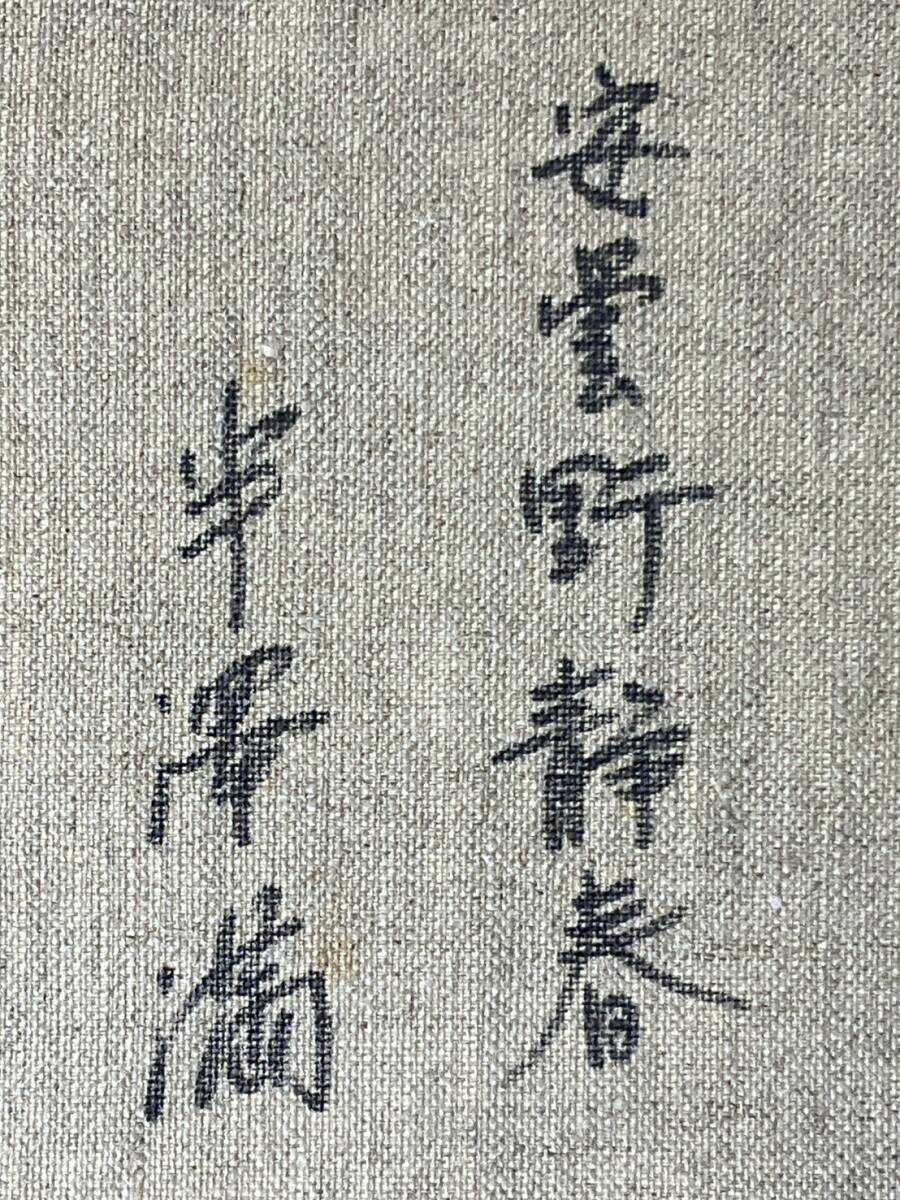 安曇野静春
半澤満